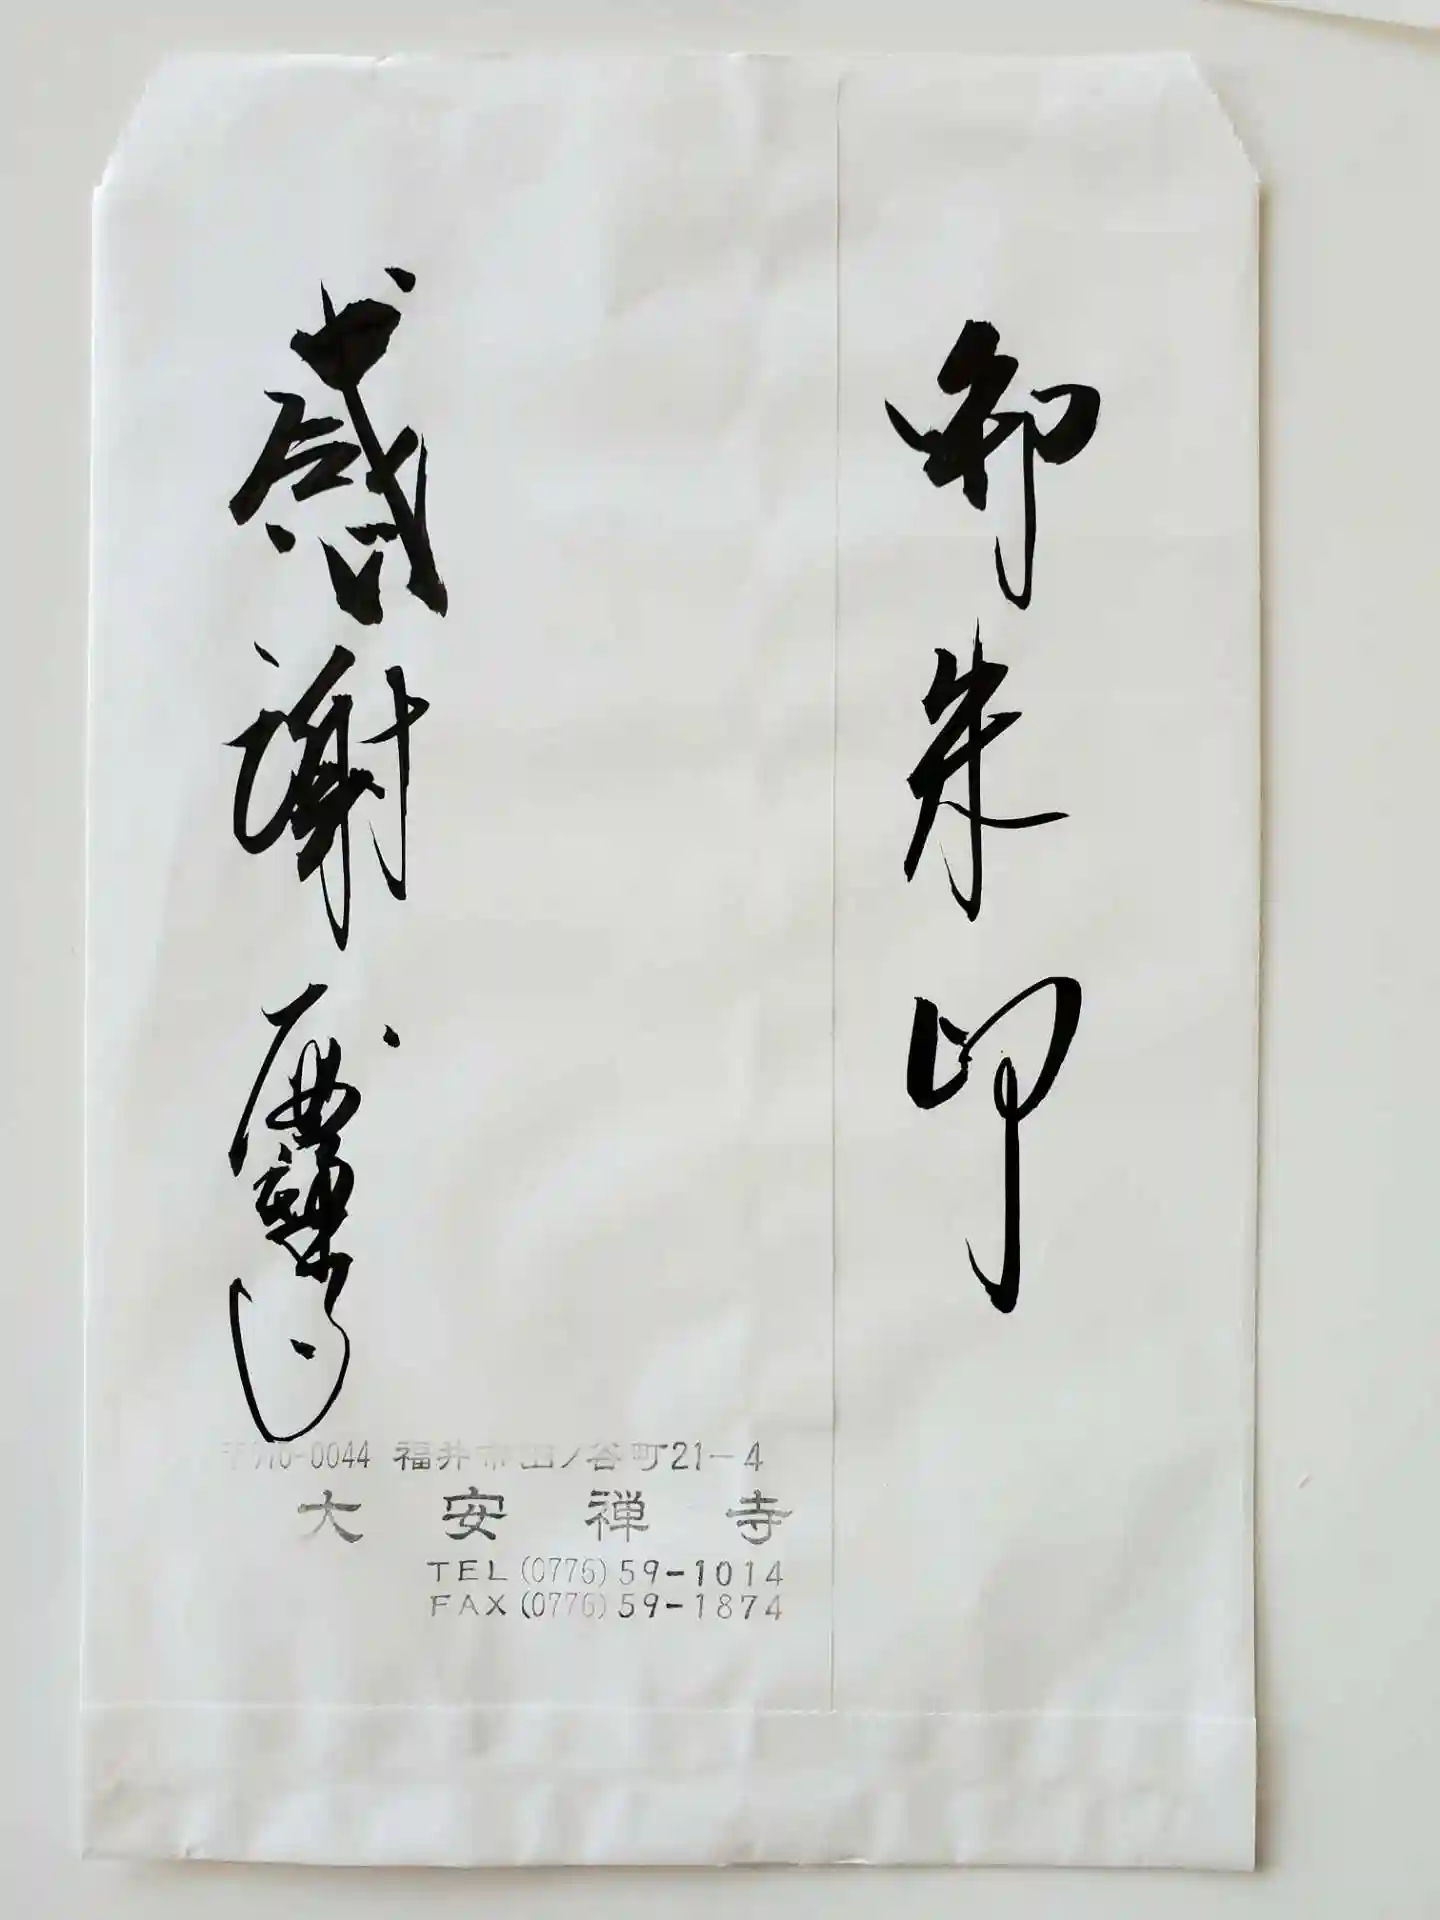 御朱印
感謝
福井市田ノ谷町21-4
大安禅寺
TEL(0776)59-1014
FAX(0776)59-1874